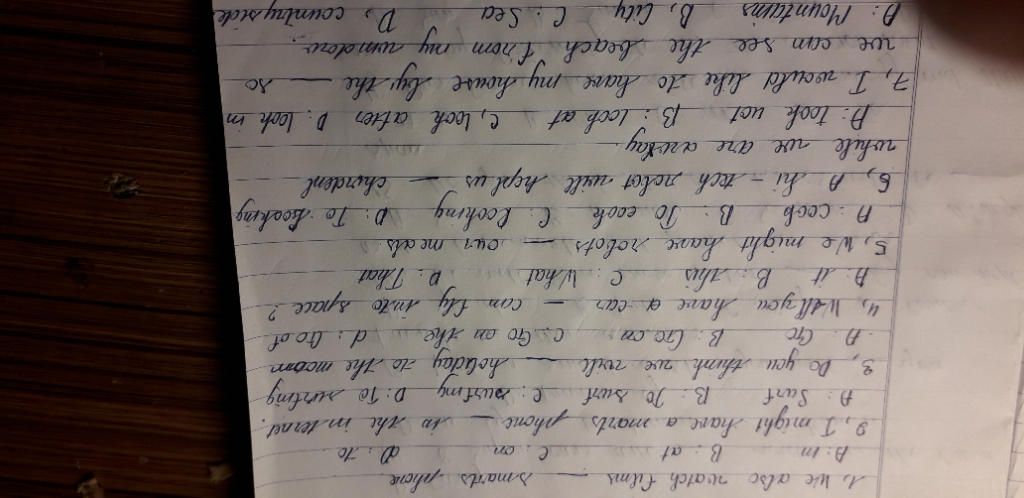 1, We also watch films — smards phone
A: in B: at C: on D: to
2, I might have a marts phone — in the internet.
A: Surf B: To surf C: surfing D: To surfing
3, Do you think we will — holiday to the moom
A: Go B: Go on C: Go on the d: Go of
4, Will you have a car — can fly into space?
A: it B: this C: What D: That
5, We might have robots — our meals
A: cook B: To cook C: Cooking D: To Cooking
6, A hi-tech robot will hepl us — chirdent
while we are away.
A: took uct B: look at C, look after D: look in
7, I would like to have my house by the — so
we can see the beach from my wumdow.
A: Mountains B, City C: Sea D, countryside